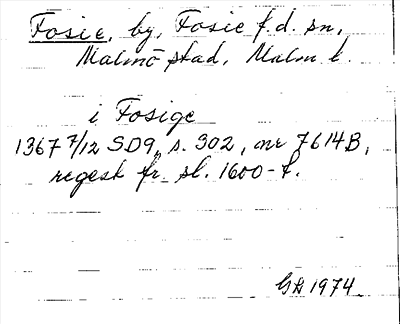 Fosie, by, Fosie f.d. sn,
Malmö stad, Malm l.
i Fosige
1367 7/12 SD9, s. 302, nr 7614B,
regest fr. sl. 1600-t.
GH 1974